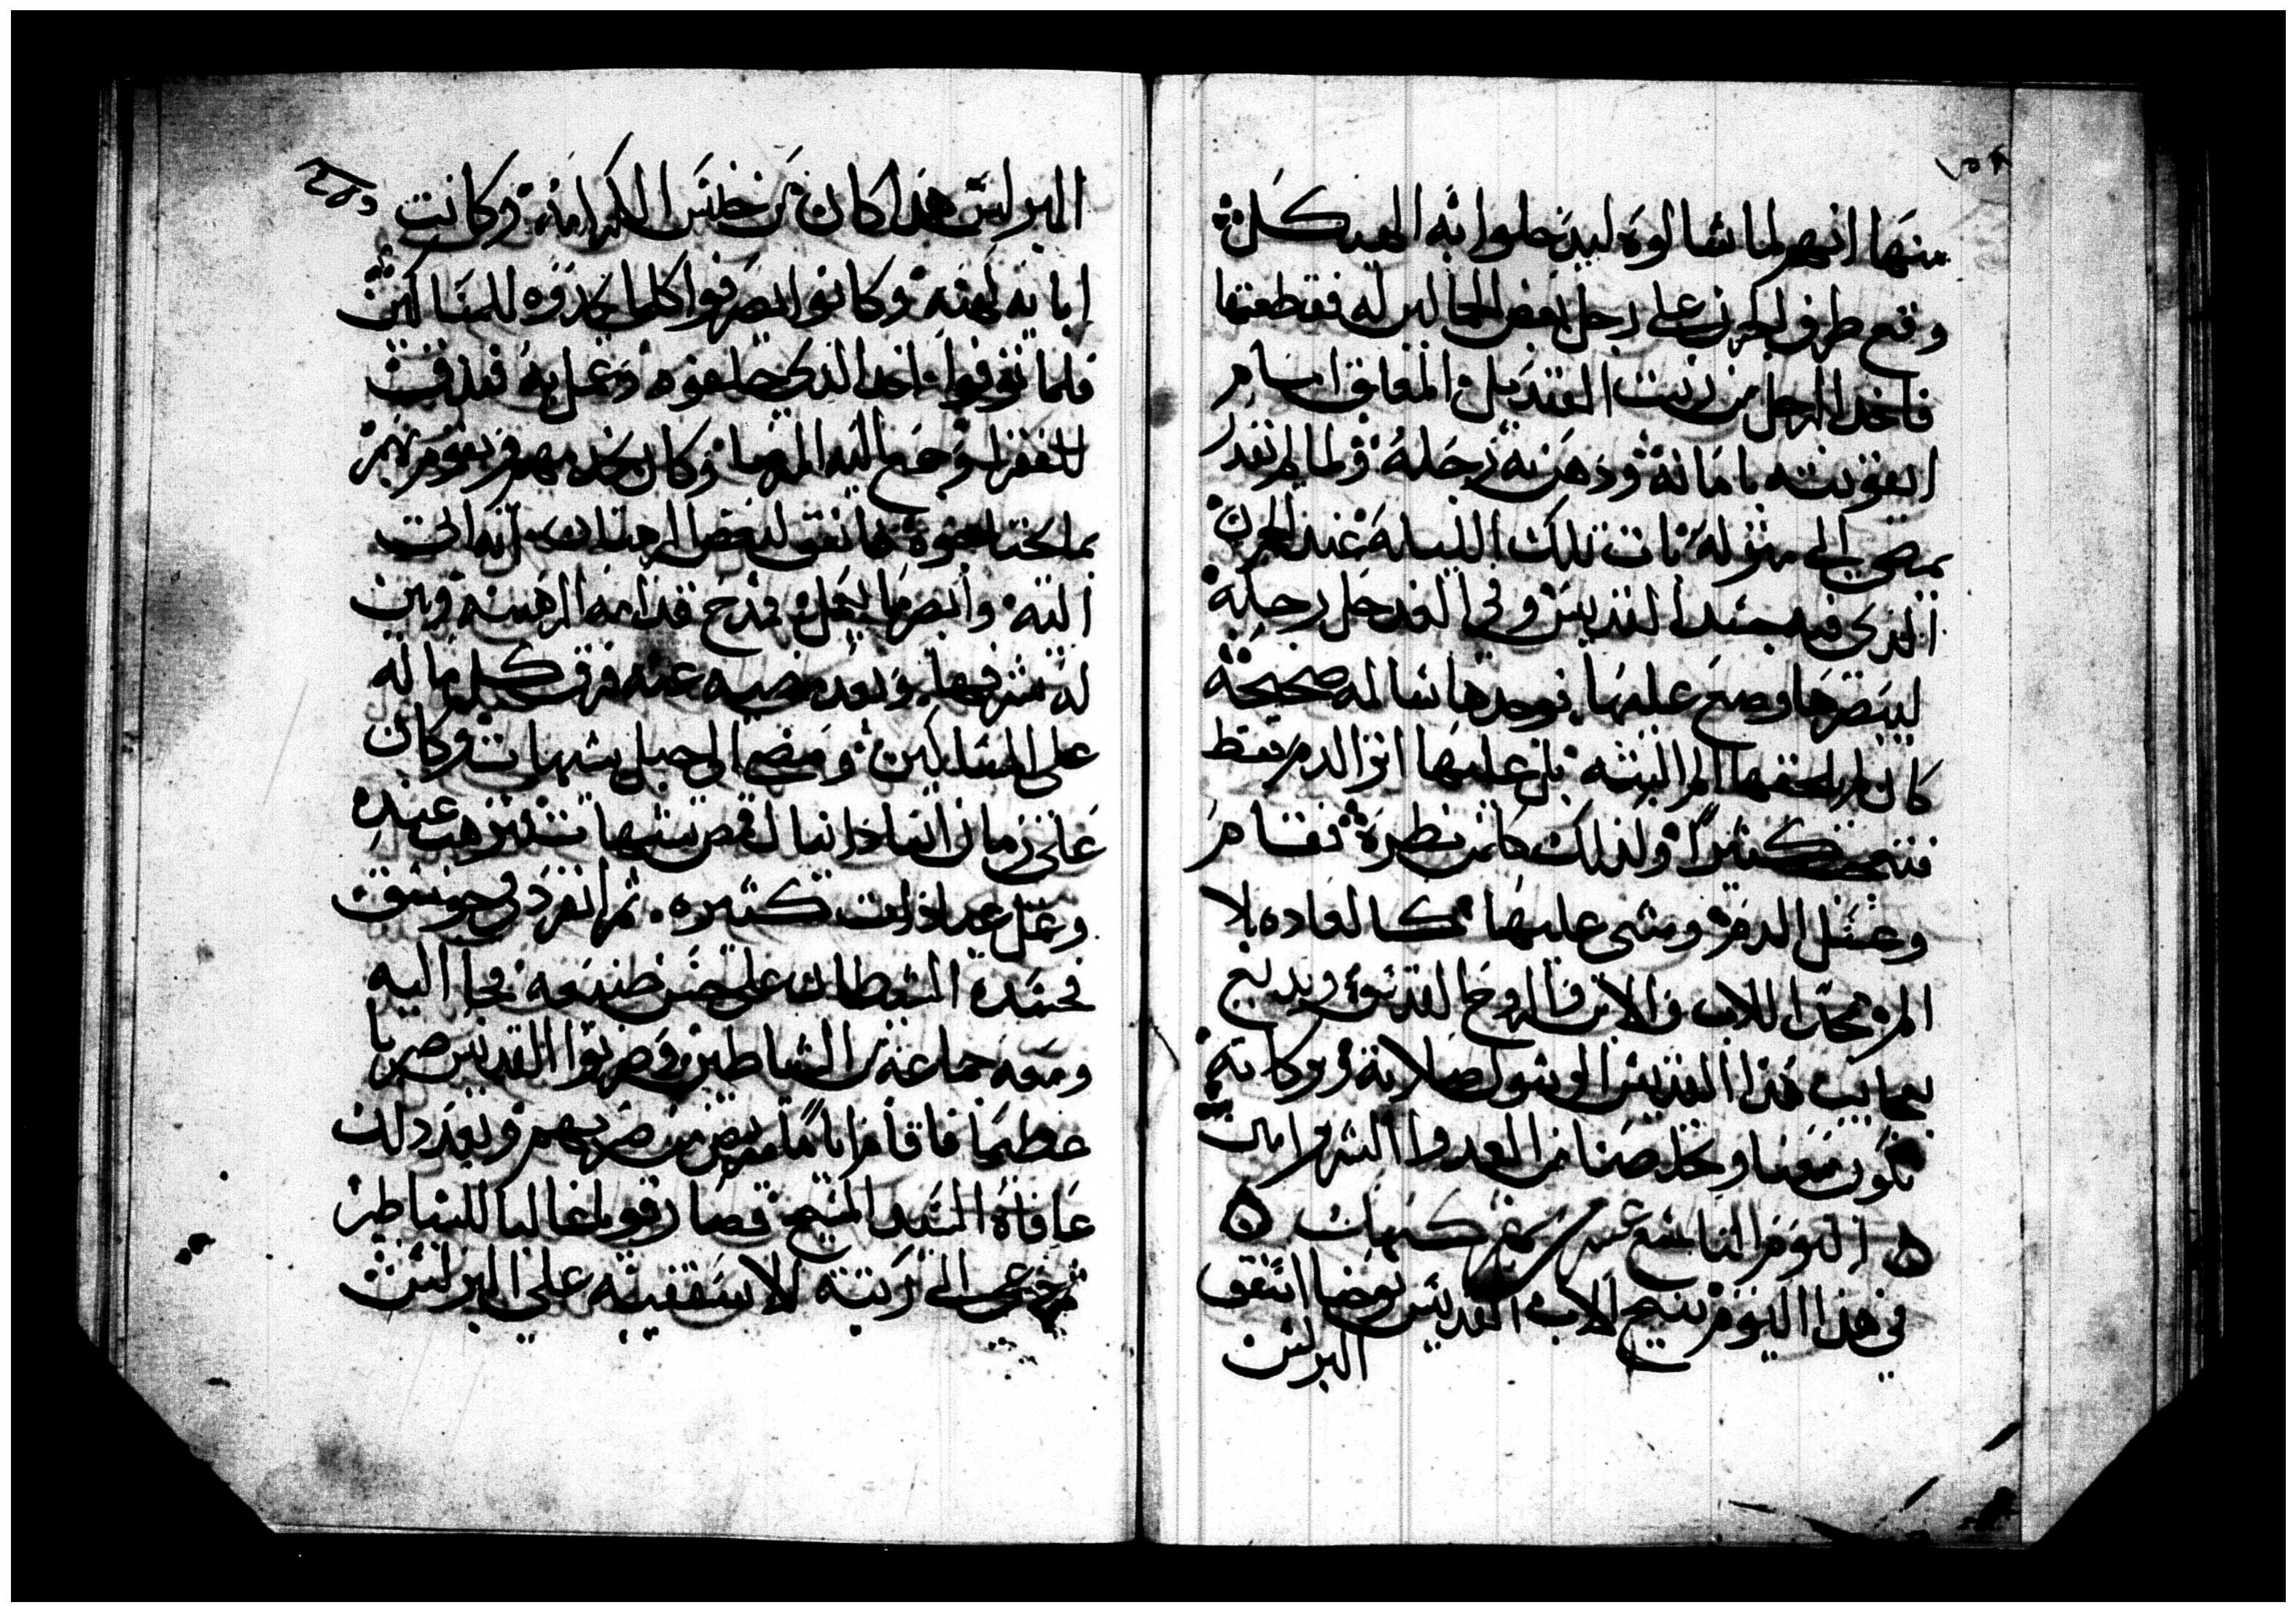 منها انهم لما شالوه ليدخلوا به الهيكل
وقع طرف الجرن على رجل بعض الحاملين له فقطعتها
فاخد الرجل من زيت القنديل المعلق امام
ايقونته بامانة ودهن به رجله ولما لم يقدر
يمضي الى منزله بات تلك الليله عند الجرن
الذي فيه جسد القديس وفي الغد حل رجله
ليبصرها وضع عليها فوجدها سالمه صحيحة
كان لم يلحقها الم البته بل عليها اثر الدم فقط
فتعجب كثيرا ولذلك كلمن نظره فقام
وغسل الدم ومشى عليها كالعاده بلا
الم ممجدا للاب والابن والروح القدس وبديع
عجايب هذا القديس الرسول صلاته وبركاته
تكون معنا وتخلصنا من العدوا الشرير امين
اليوم التاسع عشر من شهر كيهك
في هذا اليوم تنيح الاب القديس يوحنا اسقف
البرلس
البرلس هذا كان من جنس الكهنة وكانت
ابايه كهنه وكانوا يصرفوا كلما يجدوه للمساكين
فلما توفوا اخد الذي خلفوه وعمل به فندقت
للفقرا وجمع اليه المرضا وكان يخدمهم ويقوم لهم
بما يحتاجوه فاتفق لبعض الرهبان انه اتى
اليه وابصر ما يعمل فمدح قدامه الرهبنه وبين
له شرفها وبعد مضيه عنه فرق كل ما له
على المساكين ومضى الى جبل شيهات وكان
على زمان انبا دانيال قمص شيهات فترهب عنده
وعمل عبادات كثيره ثم انفرد في جوسق
فحسده الشيطان على حسن صنيعه فجا اليه
ومعه جماعة من الشياطين وضربوا القديس ضربا
عظيما فاقام اياما مريض من ضربهم وبعد ذلك
عافاه السيد المسيح فصار قويا غالبا للشياطين
ثم دعي الى رتبة الاسقفيه على البرلس